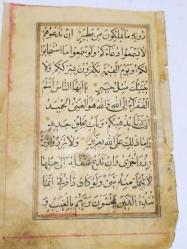 دونه ما يملكون من قطمير ان تدعوهم
لا يسمعوا دعاءكم ولو سمعوا ما استجابوا
لكم ويوم القيمة يكفرون بشرككم ولا
ينبئك مثل خبير يا ايها الناس انتم
الفقراء الى الله والله هو الغني الحميد
ان يشأ يذهبكم ويأت بخلق جديد
وما ذلك على الله بعزيز ولا تزر وازرة
وزر اخرى وان تدع مثقلة الى حملها
لا يحمل منه شيء ولو كان ذا قربى انما
تنذر الذين يخشون ربهم بالغيب و